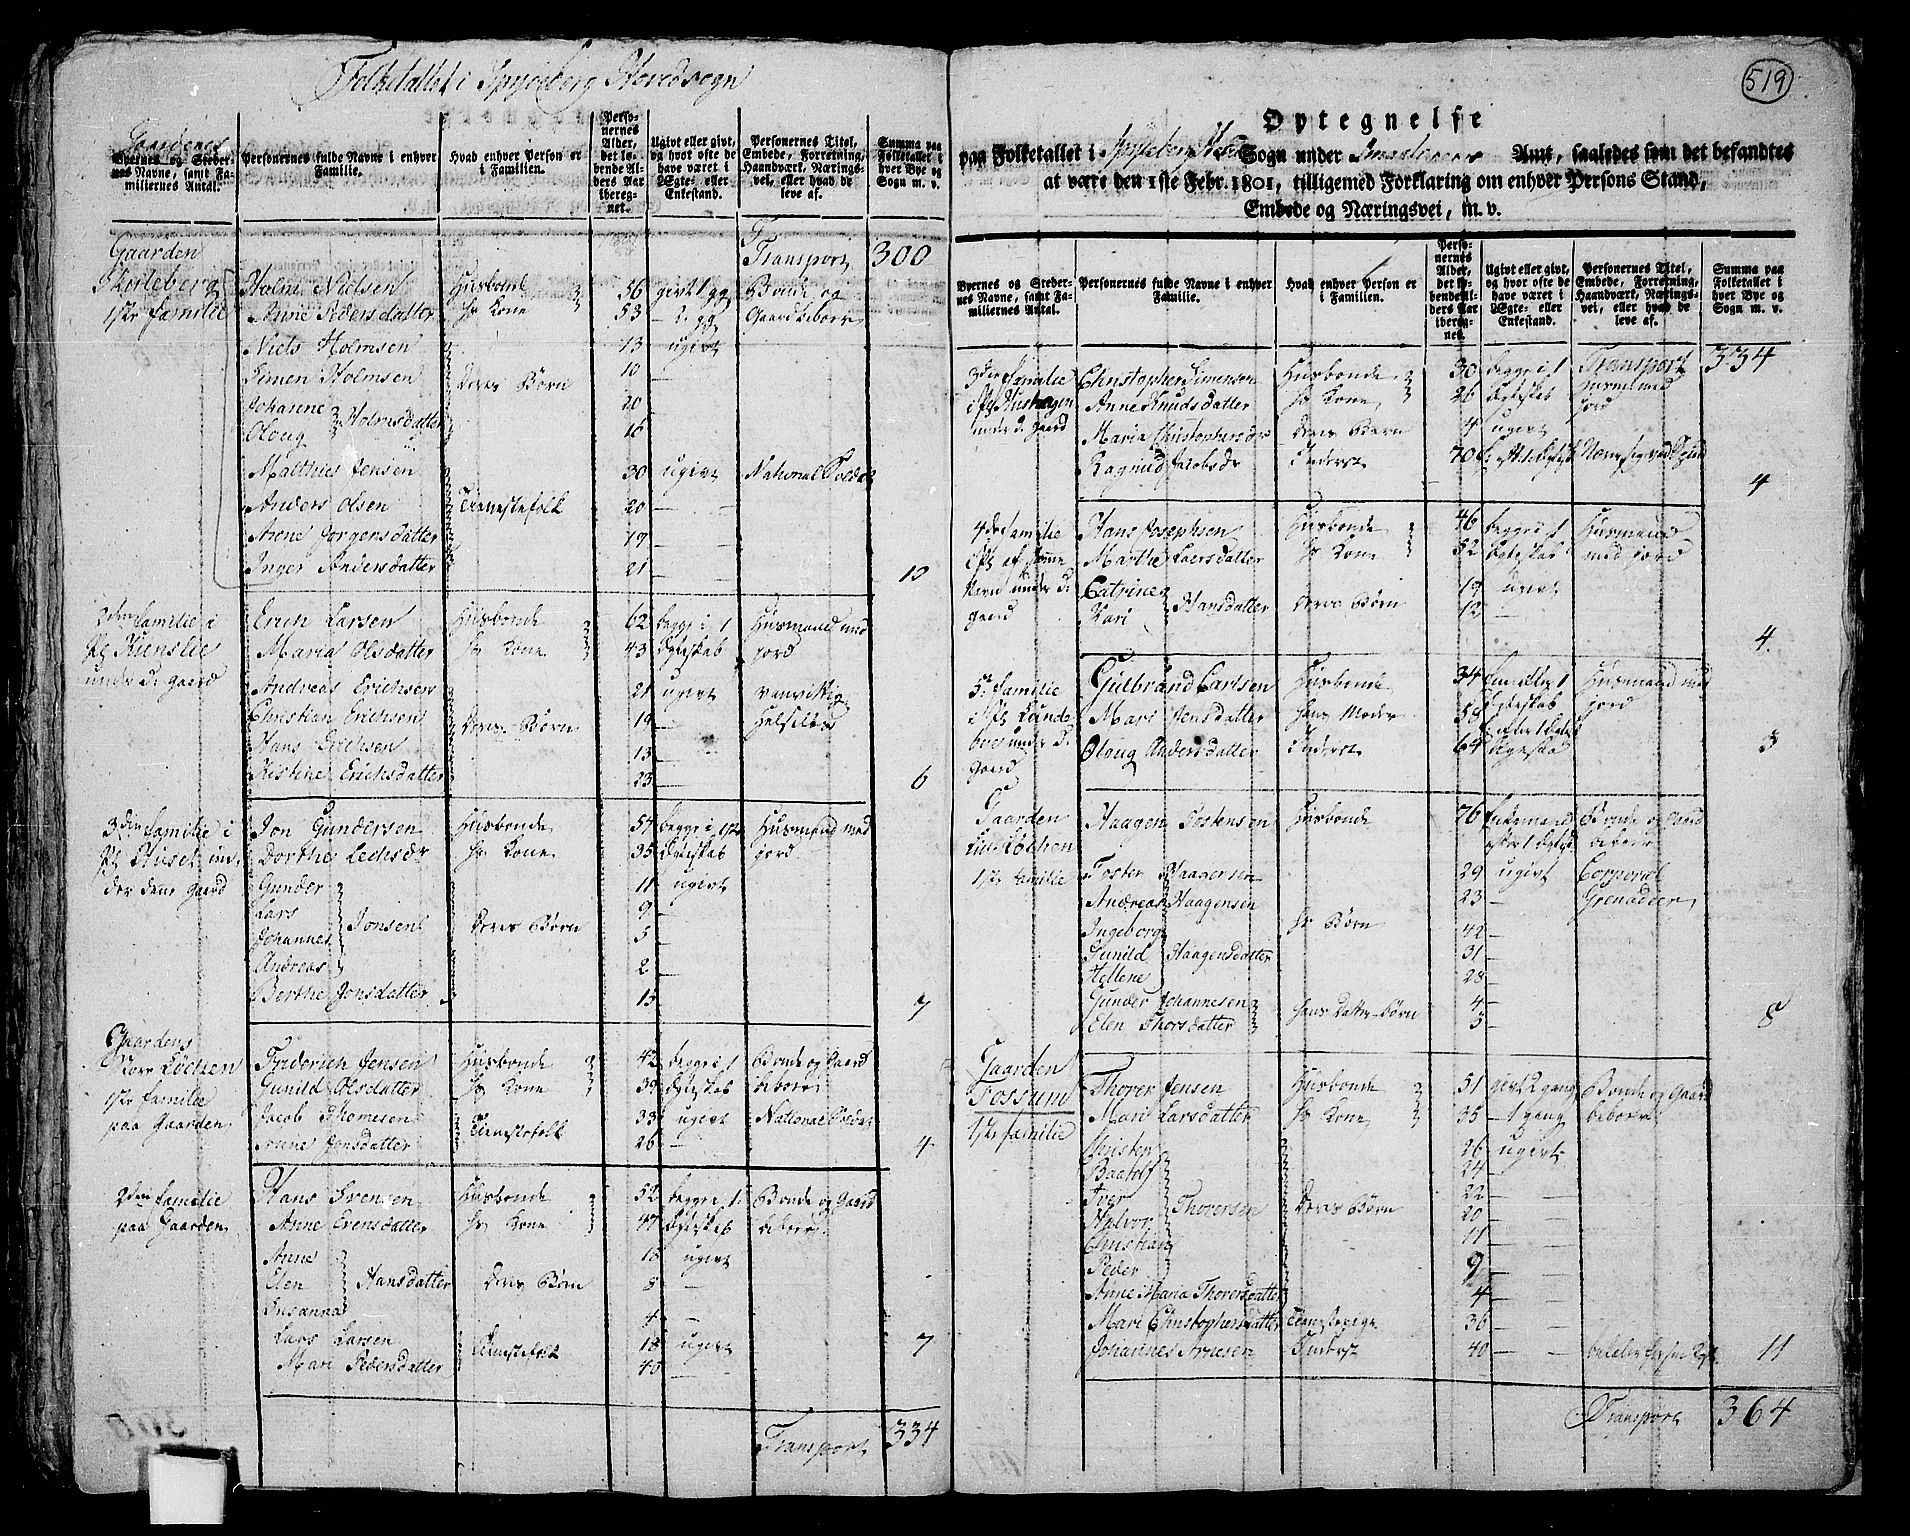 Folketallet i Spydeberg Hovedsogn
Gaardenes
Byernes og Stedernes Navne, samt Familiernes Antal.
Personernes fulde Navne i enhver Familie.
Hvad enhver Person er i Familien.
Personernes Alder, det løbende Alders Aar iberegnet.
Ugivt eller givt, og hvor ofte de have været i Ægte- eller Enkestand.
Personernes Titel, Embede, Forretning, Haandværk, Næringsvei, eller hvad de leve af.
Summa paa Folketallet i hver Bye og Sogn m. v.
Transport 300
Gaarden
Holm Nielsen Husbonde 56 givt 1 gg Bonde og
1ste familie Anne Pedersdatter hs Kone 53 – 2. gg Gaardbeboer
Niels Holmsen 13 ugivt
Simen Holmsen Deres Børn 10 —
Johanne 20 —
Oloug Holmsdatter 16 —
Matthies Jensen 30 ugivt National Soldat
Anders Olsen Tienestefolk 20 —
Anne Jorgensdatter 19 —
Inger Andersdatter 21 — 10
2den familie i Erich Larsen Husbonde 62 begge i 1 Husmand med
Maria Olsdatter hs Kone 43 Egteskab jord
under d: gaard
Andreas Erichsen 21 ugivt vanvittig
Christian Erichsen Deres Børn 19 —
Hans Erichsen 13 —
Kistine Erichsdatter 23 — 6
3den familie i Jon Gundersen Husbonde 54 begge i 1ste Husmand med
Pl Huset un, Dorthe hs Kone 35 Egteskab jord
der dene gaard Gunder 11 ugivt
Lars 9 —
Johannes Jonsen Deres Børn 5 —
Andreas 2 —
Berthe Jonsdatter 15 — 7
Gaardens
Friderich Jensen Husbonde 42 begge i 1 Bonde og Gaard
Gunild Olsdatter hs Kone 39 Egteskab beboer
1ste familie Jacob Thomesen Tienestefolk 33 ugivt National Soldat
paa Gaarden Anne Jonsdatter 26 — 4
2den familie Hans Svensen Husbonde 52 begge i 1 Bonde og Gaard
paa Gaarden Anne Evensdatter hs Kone 47 Egteskab beboer
Anne 16 ugivt
Elen Hansdatter Deres Børn 8 —
Susanna 4 —
Lars Larsen Tienestefolk 18 ugivt 7
Mari Pedersdatter 40 —
Transport 334
519
Optegnelse
paa Folketallet i Spydeberg Sogn under Smaalenenes Amt, saaledes som det befandtes
at være den 1ste Febr. 1801, tilligemed Forklaring om enhver Persons Stand,
Embede og Næringsvei, m. v.
Byernes og Stedernes Navne, samt Familiernes Antal.
Personernes fulde Navne i enhver Familie.
Hvad enhver Person er i Familien.
Personernes Alder, det løbende Alders Aar iberegnet.
Ugivt eller givt, og hvor ofte de have været i Ægte- eller Enkestand.
Personernes Titel, Embede, Forretning, Haandværk, Næringsvei, eller hvad de leve af.
Summa paa Folketallet i hver Bye og Sogn m. v.
Transport 334
3die familie Christopher Simensen Husbonde 30 begge i 1 Husmand med
Anne Knudsdatter hs Kone 26 Egteskab jord
under d. gaard Maria Christophersdr Deres Børn 4 ugivt
Ragnild Jacobsdr Inderst 70
4
4de familie Hans Josephsen Husbonde 46 begge i 1 Husmand
Marthe Laersdatter hs Kone 52 Egteskab med jord
Navn under d: Catrine 19 ugivt
gaard Kari Hansdatter Deres Børn 12 —
4.
Gulbrand Carlsen Husbonde 34 Husmand med
5te familie Mari Jensdatter hans Moder 58 jord
Oloug Andersdatter Inderst 64 3
Gaarden Haagen Tostensen Husbonde 76 Enkemand Bonde og Gaard
beboer
1ste familie Tosten Haagensen 29 ugivt Corporal
Andreas Haagensen hs Børn 23 — Grenadeer
Ingeborg 42 —
Gunild Haagensdatter 31 —
Hellene 28 —
Gunder Johannesen hans Datter-Børn 4 —
Elen Thorsdatter 5 — 8
Gaarden
Fossum Thorer Jensen Husbonde 51 givt 2 gang Bonde og Gaard
Mari Larsdatter hs Kone 35 – 1 gang beboer
1ste familie
Christen 26 ugivt
24 —
Iver 22 —
Halvor Thorersen Deres Børn 20 —
Christian 11 —
Peder 9 —
Anne Maria Thorersdatter 4 —
Mari Christophersdatter Tienestepige 36 —
Johannes Arnesen Inderst 40 — 11
Transport 364